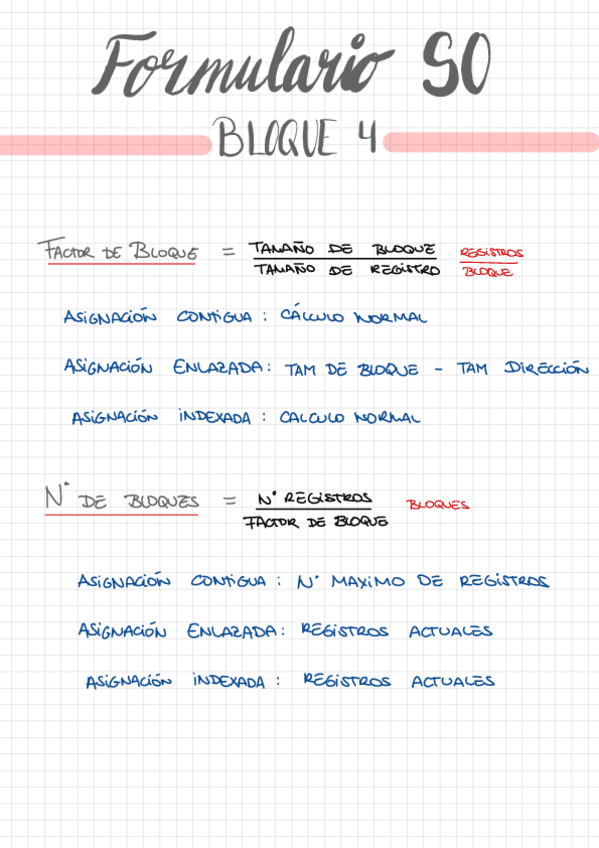 Formulario SO
BLOQUE 4
FACTOR DE BLOQUE = TAMAÑO DE BLOQUE REGISTROS
TAMAÑO DE REGISTRO BLOQUE
ASIGNACIÓN CONTIGUA : CÁLCULO NORMAL
ASIGNACIÓN ENLAZADA : TAM DE BLOQUE - TAM DIRECCIÓN
ASIGNACIÓN INDEXADA : CALCULO NORMAL
N° DE BLOQUES = N° REGISTROS BLOQUES
FACTOR DE BLOQUE
ASIGNACIÓN CONTIGUA : N° MAXIMO DE REGISTROS
ASIGNACIÓN ENLAZADA : REGISTROS ACTUALES
ASIGNACIÓN INDEXADA : REGISTROS ACTUALES